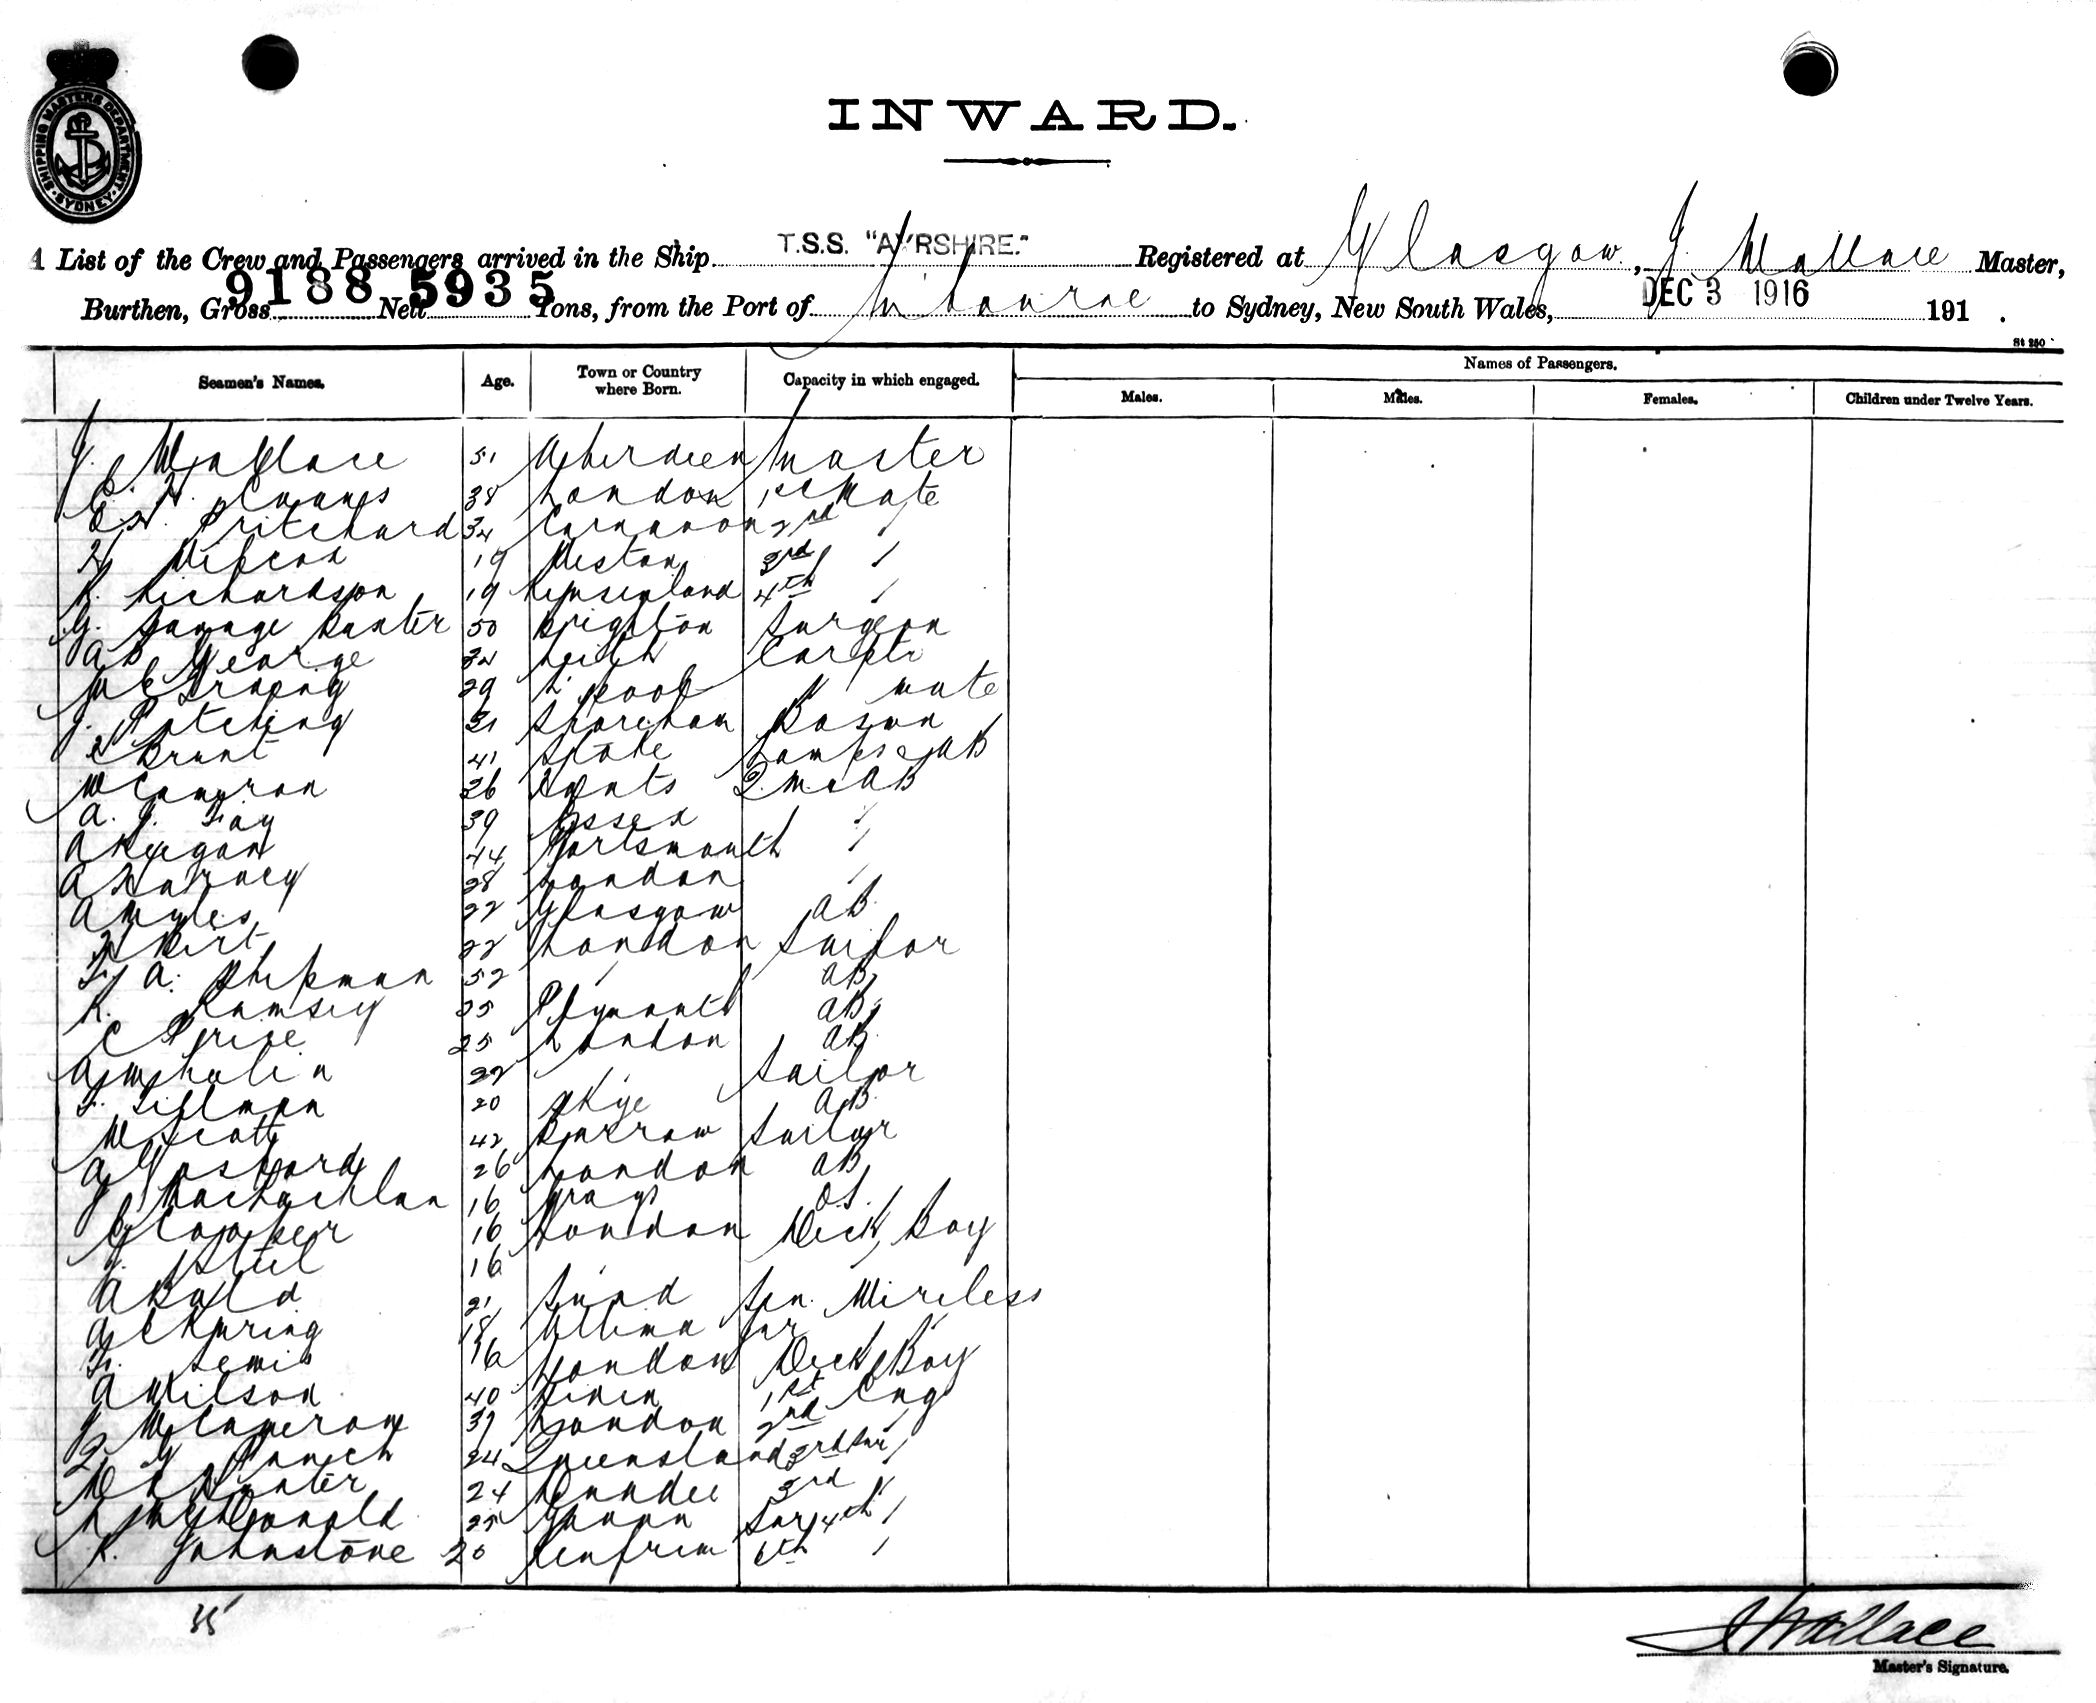 SHIPPING MASTERS DEPARTMENT SYDNEY
INWARD.
A List of the Crew and Passengers arrived in the Ship T.S.S. "AYRSHIRE." Registered at Glasgow, J. Wallace Master,
Burthen, Gross 9188 Nett 5935 Tons, from the Port of M'bourne to Sydney, New South Wales, DEC 3 1916 191 .
St 250
Seamen's Names. Age. Town or Country where Born. Capacity in which engaged. Names of Passengers.
Males. Males. Females. Children under Twelve Years.
J. Wallace 51 Aberdeen Master
E. H. Evans 38 London 1st Mate
Pritchard 34 Carnarvon 2nd "
H 19 Weston 3rd "
R. Richardson 19 Queensland 4th "
G. Savage Baxter 50 Brighton Surgeon
A B George 34 Leith Carptr
29 L'pool " mate
J. Patching 31 Shoreham Bosun
E Brunt 41 Stoke Lamps & AB
W Cameron 26 Hants Q.M. & AB
A. J. Fay 39 Essex "
A Keegan 44 Portsmouth "
A 28 London "
A Myles 22 Glasgow AB
H Birt 22 London Sailor
F. A. Shipman 52 " AB
R. Ramsey 25 Plymouth AB
C Price 25 London AB
A 22 " Sailor
F. Tillman 20 Skye AB
W Scott 42 Barrow Sailor
A Gosford 26 London AB
J MacLachlan 16 Grays OS.
G Cowper 16 London Deck Boy
J. Steel 16 "
A Bald 21 Snr. Wireless
18 Jnr "
F. Lewis 16 London Deck Boy
A Wilson 40 1st Eng
J. W Cameron 39 London 2nd "
24 Queensland 3rd "
W L Hunter 24 Dundee 3rd "
McDonald 25 4th "
R. Johnstone 20 Renfrew 6th "
35
J Wallace
Master's Signature.